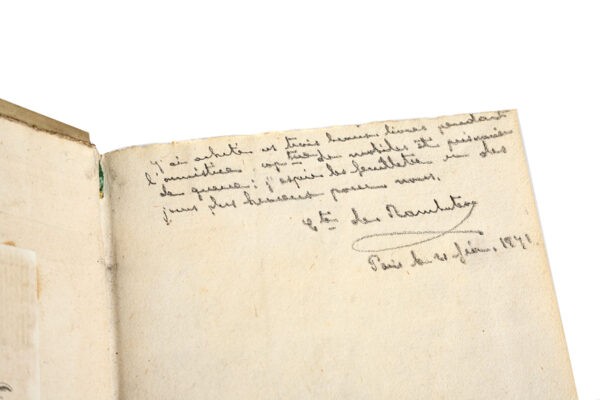 J'ai acheté ces trois beaux livres pendant
l'armistice, cap^tne des mobiles et prisonnier
de guerre : j'espère les feuilleter en des
jours plus heureux pour nous.
C^te de Rambuteau
Paris, le 21 févr. 1871.